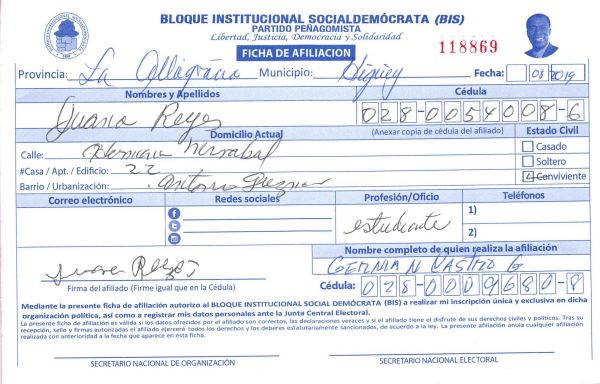 BLOQUE INSTITUCIONAL SOCIALDEMÓCRATA (BIS)
PARTIDO PEÑAGOMISTA
Libertad, Justicia, Democracia y Solidaridad
FICHA DE AFILIACION
118869
Provincia: La Altagracia Municipio: Higüey Fecha: 08 2019
Nombres y Apellidos Cédula
Juana Reyes 028-0054008-6
Domicilio Actual (Anexar copia de cédula del afiliado) Estado Civil
Calle: Casado
#Casa / Apt. / Edificio: 22 Soltero
Barrio / Urbanización: Antonio Guzman Conviviente
Correo electrónico Redes sociales Profesión/Oficio Teléfonos
estudiante
1)
2)
Nombre completo de quien realiza la afiliación
Juana Reyes GERMAN CASTRO G
Firma del afiliado (Firme igual que en la Cédula) Cédula: 028-0009680-8
Mediante la presente ficha de afiliación autorizo al BLOQUE INSTITUCIONAL SOCIAL DEMÓCRATA (BIS) a realizar mi inscripción única y exclusiva en dicha
organización política, así como a registrar mis datos personales ante la Junta Central Electoral.
La presente ficha de afiliación es válida si los datos ofrecidos por el afiliado son correctos, las declaraciones veraces y si el afiliado tiene el disfrute de sus derechos civiles y políticos. Tras su
recepción, sello y firmas autorizadas el afiliado ejercerá todos los derechos y los deberes estatutariamente sancionados, de acuerdo a la ley. La presente afiliación anula cualquier afiliación
realizada con anterioridad a la fecha que aparece en esta ficha.
SECRETARIO NACIONAL DE ORGANIZACIÓN SECRETARIO NACIONAL ELECTORAL